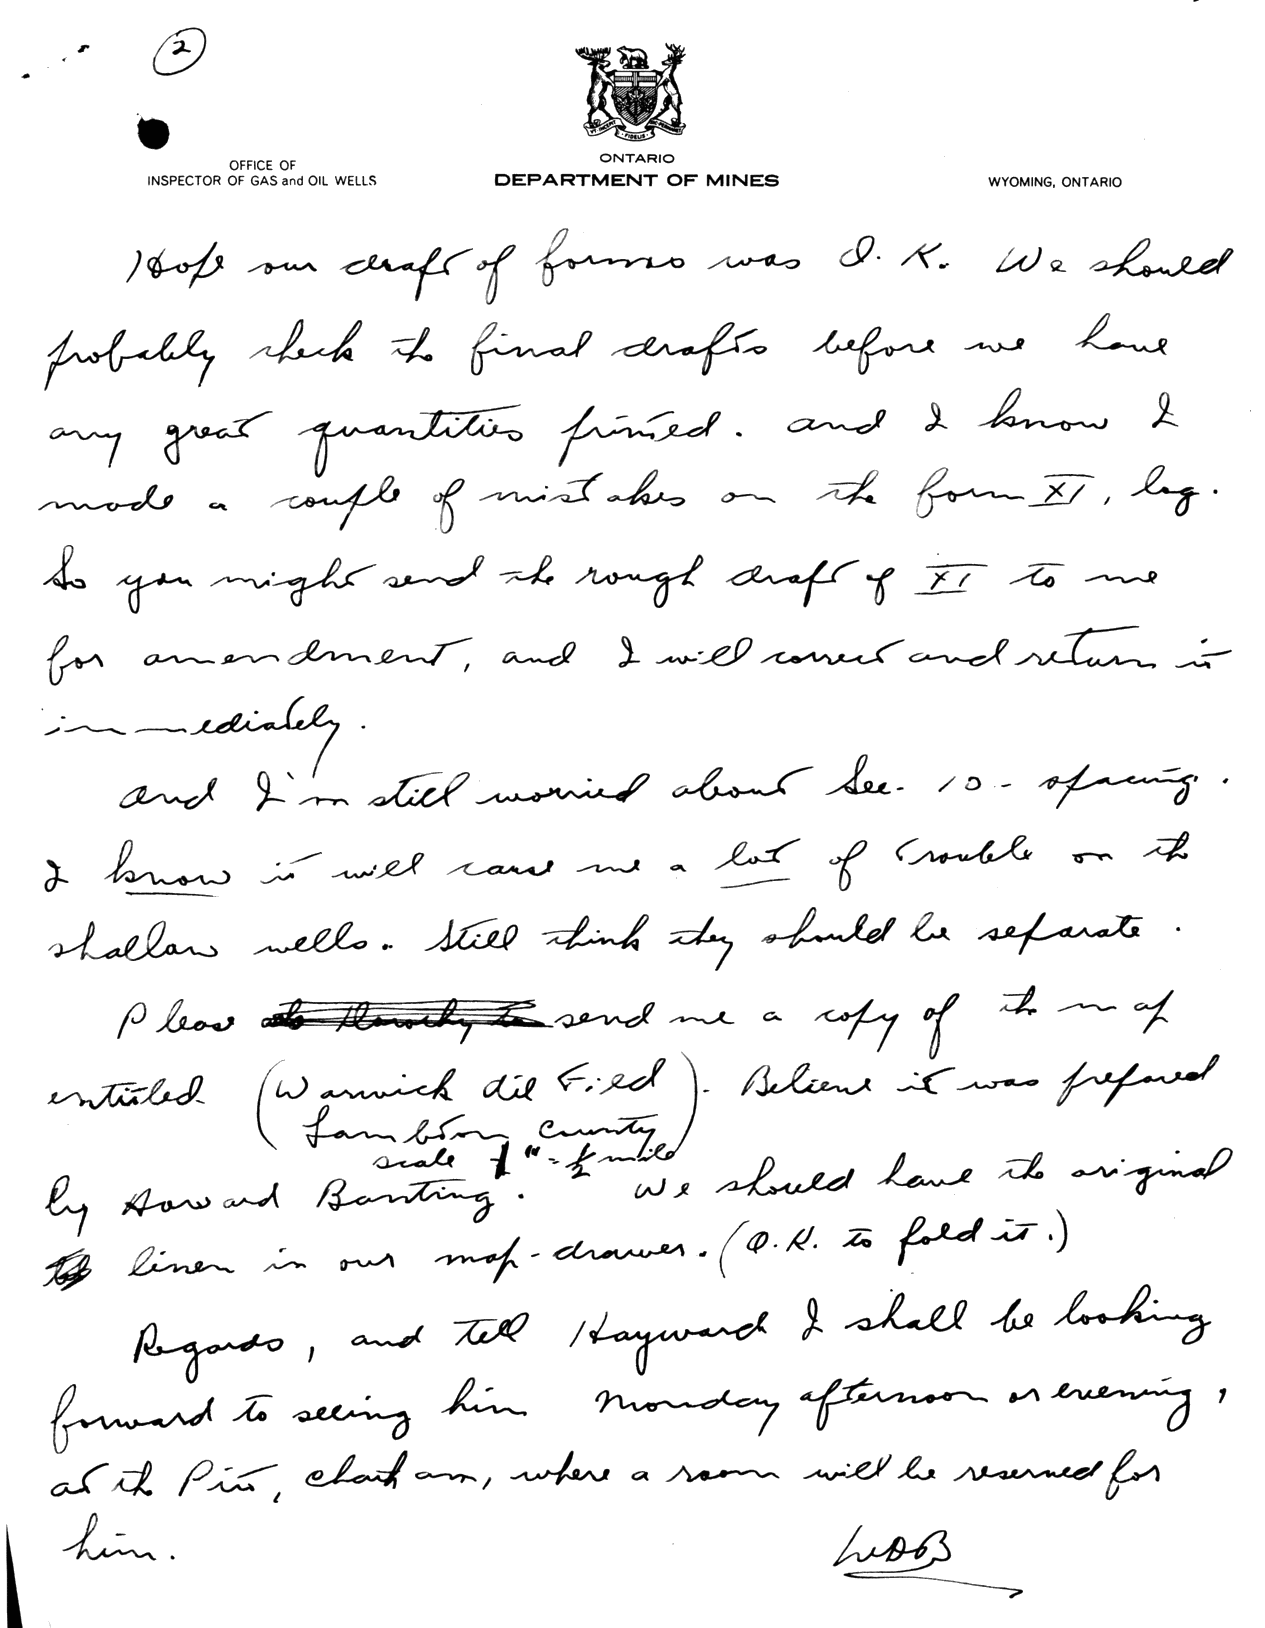 2
UT INCEPIT FIDELIS SIC PERMANET
ONTARIO
OFFICE OF
INSPECTOR OF GAS and OIL WELLS
DEPARTMENT OF MINES
WYOMING, ONTARIO
Hope our draft of forms was O.K. We should
probably check the final drafts before we have
any great quantities printed. And I know I
made a couple of mistakes on the form XI, log.
So you might send the rough draft of XI to me
for amendment, and I will correct and return it
immediately.
And I'm still worried about Sec. 10 - spacing.
I know it will cause me a lot of trouble on the
shallow wells. Still think they should be separate.
Please send me a copy of the map
entitled (Warwick Oil Field). Believe it was prepared
Lambton County
scale 1" = 1/2 mile
by Howard Banting. We should have the original
linen in our map-drawer. (O.K. to fold it.)
Regards, and tell Hayward I shall be looking
forward to seeing him Monday afternoon or evening,
at the Pitt, Chatham, where a room will be reserved for
him.